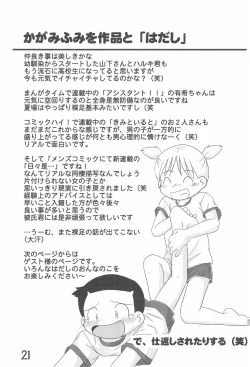 かがみふみを作品と「はだし」
仲良き事は美しきかな
幼馴染からスタートした山下さんとハルキ君も
もう流石に高校生になってると思いますが
今も元気でイチャイチャしてるのかな？（笑）
まんがタイムで連載中の「アシスタント！！」の有希ちゃんは
元気に空回りするのと全身是無防備なのが良いですね
夏場はやっぱり裸足基本みたいですし（笑）
コミックハイ！で連載中の「きみといると」のお２人さんも
まだまだこれからな感じですが、男の子が一方的に
盛り上がってる感じが何とも男心理的に情けなーく（笑）
リアルで面白いです。
そして「メンズコミックにて新連載の
「日々是…」ですね！
なんてリアルな同棲描写なんでしょう
片付けられない女の子とか
思いっきり現実に引き戻されました（笑
経験上のアドバイスとしては
早いこと入籍した方が色々後々
良い事が多いと思うので
彼氏君には是非頑張って欲しいです
…うーむ、また裸足の話が出てこない
（大汗）
次のページからは
ゲスト様のページです。
いろんなはだしのおんなのこを
お楽しみください〜
で、仕返しされたりする（笑）
21